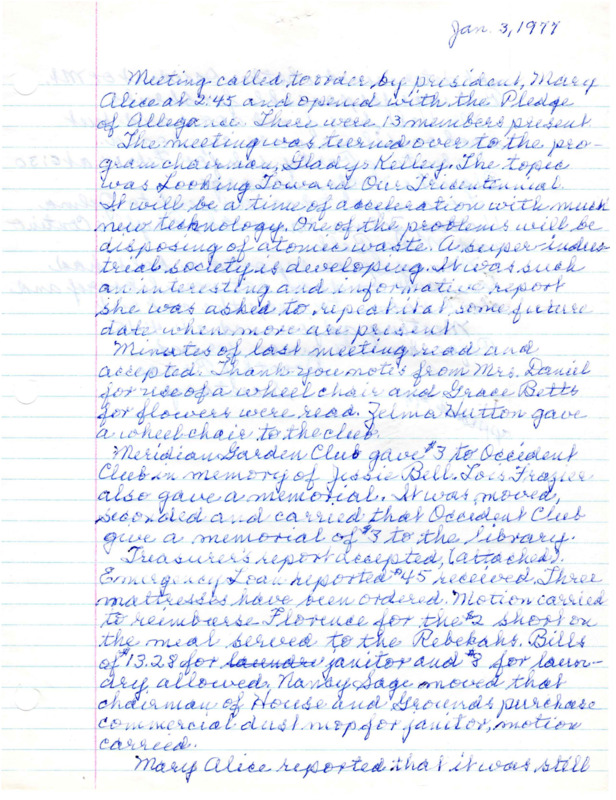 Jan. 3, 1977
Meeting called to order by president, Mary
Alice at 2:45 and opened with the Pledge
of Allegance. There were 13 members present
The meeting was turned over to the pro-
gram chairman, Gladys Kelley. The topic
was Looking Toward Our Tricentennial.
It will be a time of acceleration with much
new technology. One of the problems will be
disposing of atomic waste. A super-indus-
trial society is developing. It was such
an interesting and informative report
she was asked to repeat it at some future
date when more are present.
Minutes of last meeting read and
accepted. Thank you notes from Mrs. Daniel
for use of a wheel chair and Grace Betts
for flowers were read. Zelma Hutton gave
a wheel chair to the club.
Meridian Garden Club gave $3 to Occident
Club in memory of Jessie Bell. Lois Frazier
also gave a memorial. It was moved,
seconded and carried that Occident Club
give a memorial of $3 to the library.
Treasurer's report accepted, (attached).
Emergency Loan reported $45 received. Three
mattresses have been ordered. Motion carried
to reemburse Florence for the $2 short on
the meal served to the Rebekahs. Bills
of $13.28 for laundry janitor and $8 for laun-
dry allowed. Nancy Sage moved that
chairman of House and Grounds purchase
commercial dust mop for janitor, motion
carried.
Mary Alice reported that it was still